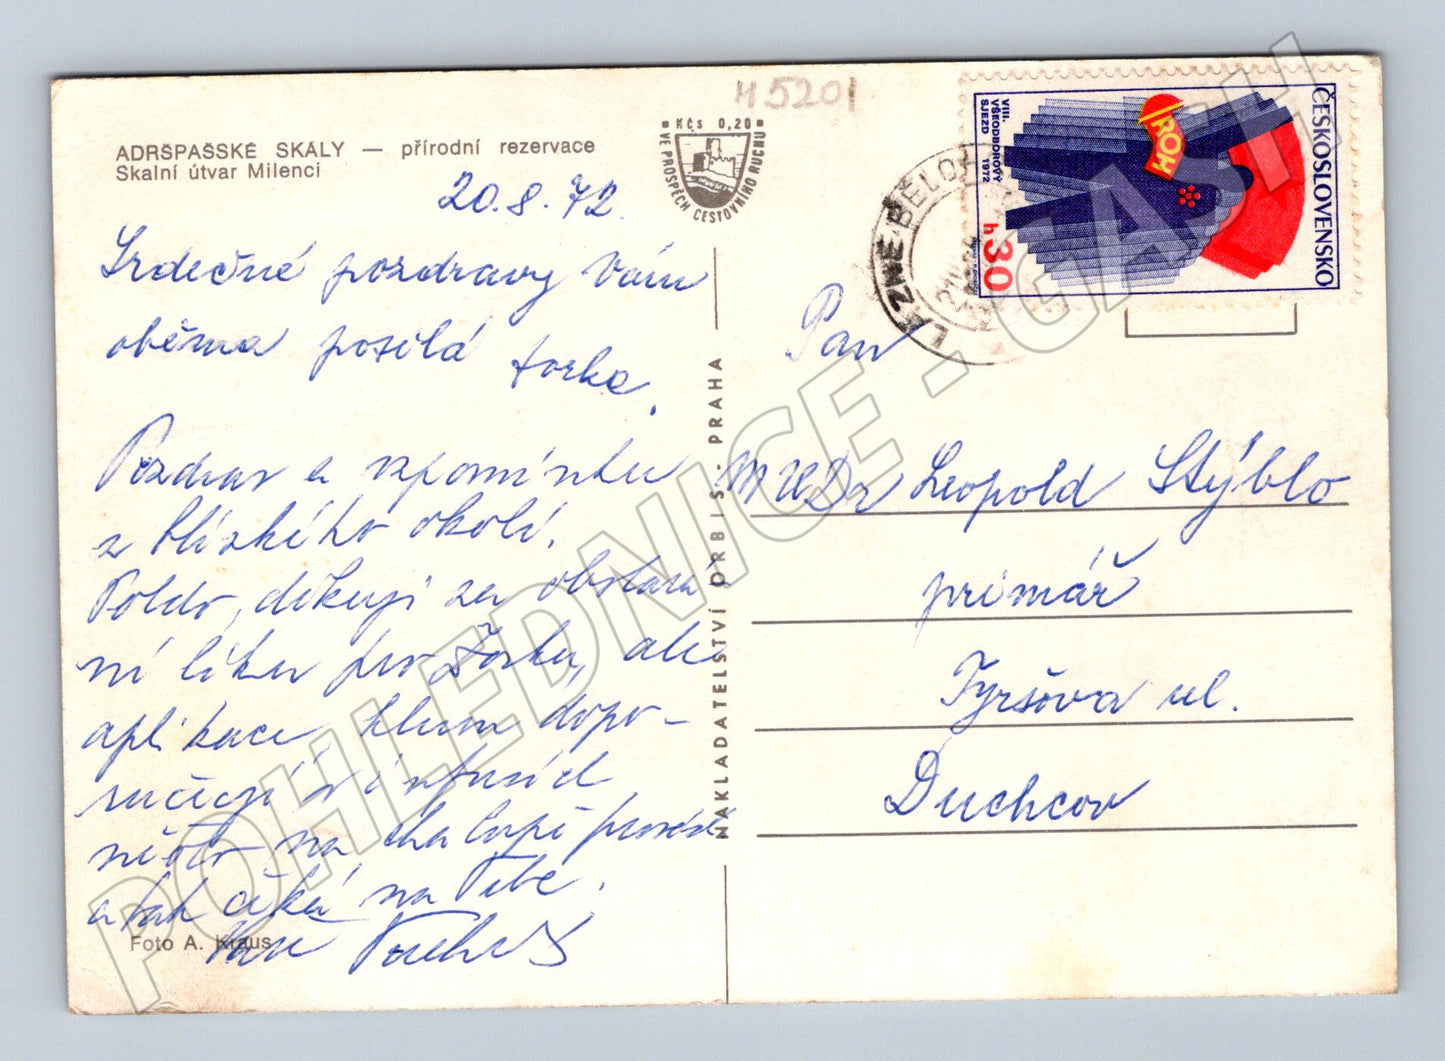 H 5201
ADRŠPAŠSKÉ SKÁLY — přírodní rezervace
Skalní útvar Milenci
Kčs 0,20
VE PROSPĚCH CESTOVNÍHO RUCHU
20.8.72.
Srdečné pozdravy Vám
oběma posílá
Pozdrav a vzpomínku
z blízkého okolí.
Poldo, děkuji za obstará
ní léku pro Jorku, ale
aplikace, kterou dopo-
ručují v
na chalupě
a tak čeká na Tebe.
Foto A. Kraus
NAKLADATELSTVÍ ORBIS · PRAHA
ČESKOSLOVENSKO
VIII. VŠEODBOROVÝ SJEZD 1972
ROH
30 h
LÁZNĚ BĚLOH
Pan
MUDr Leopold Stýblo
primář
Tyršova ul.
Duchcov
POHLEDNICE - GASH